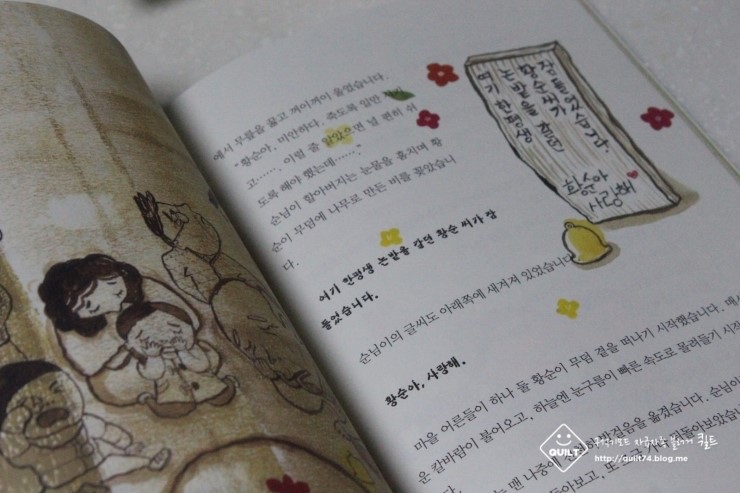 에서 무릎을 꿇고 꺼이꺼이 울었습니다.
"황순아, 미안하다. 죽도록 일만
고……. 이럴 줄 알았으면 널 편히 쉬
도록 해야 했는데……"
순님이 할아버지는 눈물을 훔치며 황
순이 무덤에 나무로 만든 비를 꽂았습니
다.
여기 한평생 논밭을 갈던 황순 씨가 잠
들었습니다.
순님이의 글씨도 아래쪽에 새겨져 있었습니다.
황순아, 사랑해.
마을 어른들이 하나 둘 황순이 무덤 곁을 떠나기 시작했습니다. 매서
운 칼바람이 불어오고, 하늘엔 눈구름이 빠른 속도로 몰려들기 시작
발걸음을 옮겼습니다. 순님이
여기 한평생
논밭을 갈던
황순 씨가
잠들었습니다.
황순아
사랑해
QUILT
퀼트
http://quilt74.blog.me